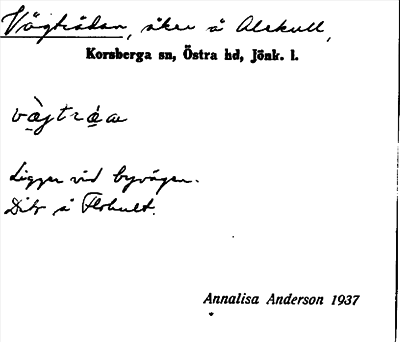 Vägträdan, åker å Alskull,
Korsberga sn, Östra hd, Jönk. l.
Ligger vid byvägen.
Dito å Flohult.
Annalisa Anderson 1937